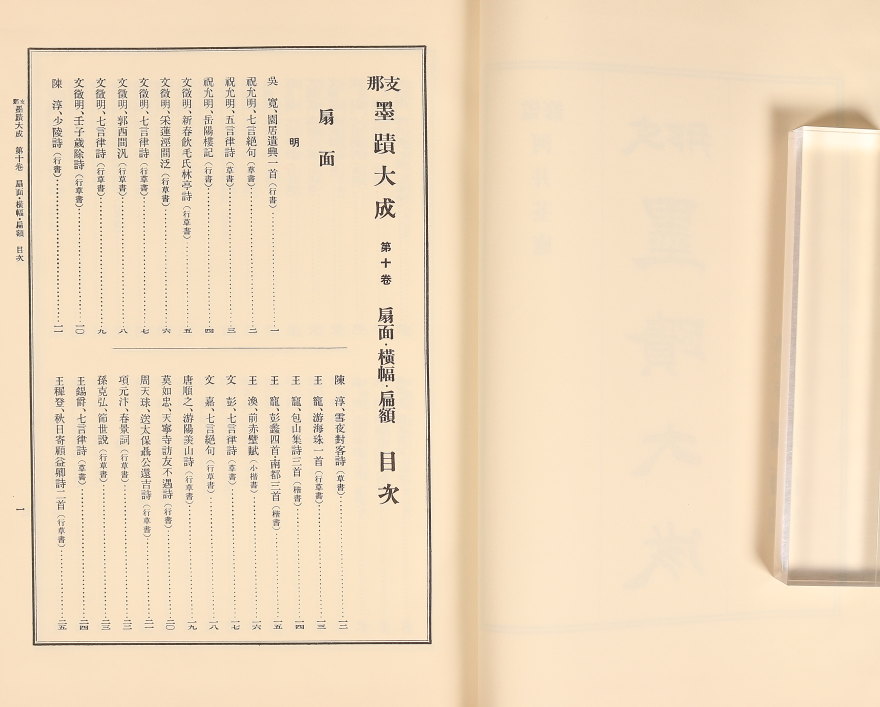 支那墨蹟大成 第十卷 扇面・橫幅・扁額 目次
扇面
明
吳　寬、園居遣興一首（行書）……一
祝允明、七言絕句（草書）……二
祝允明、五言律詩（草書）……三
祝允明、岳陽樓記（行書）……四
文徵明、新春飲毛氏林亭詩（行草書）……五
文徵明、采蓮涇閒泛（行草書）……六
文徵明、七言律詩（行草書）……七
文徵明、郭西閒汎（行草書）……八
文徵明、七言律詩（行草書）……九
文徵明、壬子歲除詩（行草書）……一〇
陳　淳、少陵詩（行書）……一一
陳　淳、雪夜對客詩（草書）……一二
王　寵、游海珠一首（行草書）……一三
王　寵、包山集詩三首（楷書）……一四
王　寵、彭蠡四首・南都三首（楷書）……一五
王　渙、前赤壁賦（小楷書）……一六
文　彭、七言律詩（草書）……一七
文　嘉、七言絕句（行草書）……一八
唐順之、游陽羨山詩（行草書）……一九
莫如忠、天寧寺訪友不遇詩（行書）……二〇
周天球、送太保聶公還吉詩（行草書）……二一
項元汴、春景詞（行草書）……二二
孫克弘、節世說（行草書）……二三
王錫爵、七言律詩（草書）……二四
王穉登、秋日寄顧益卿詩二首（行草書）……二五
支那墨蹟大成　第十卷　扇面・橫幅・扁額　目次
一